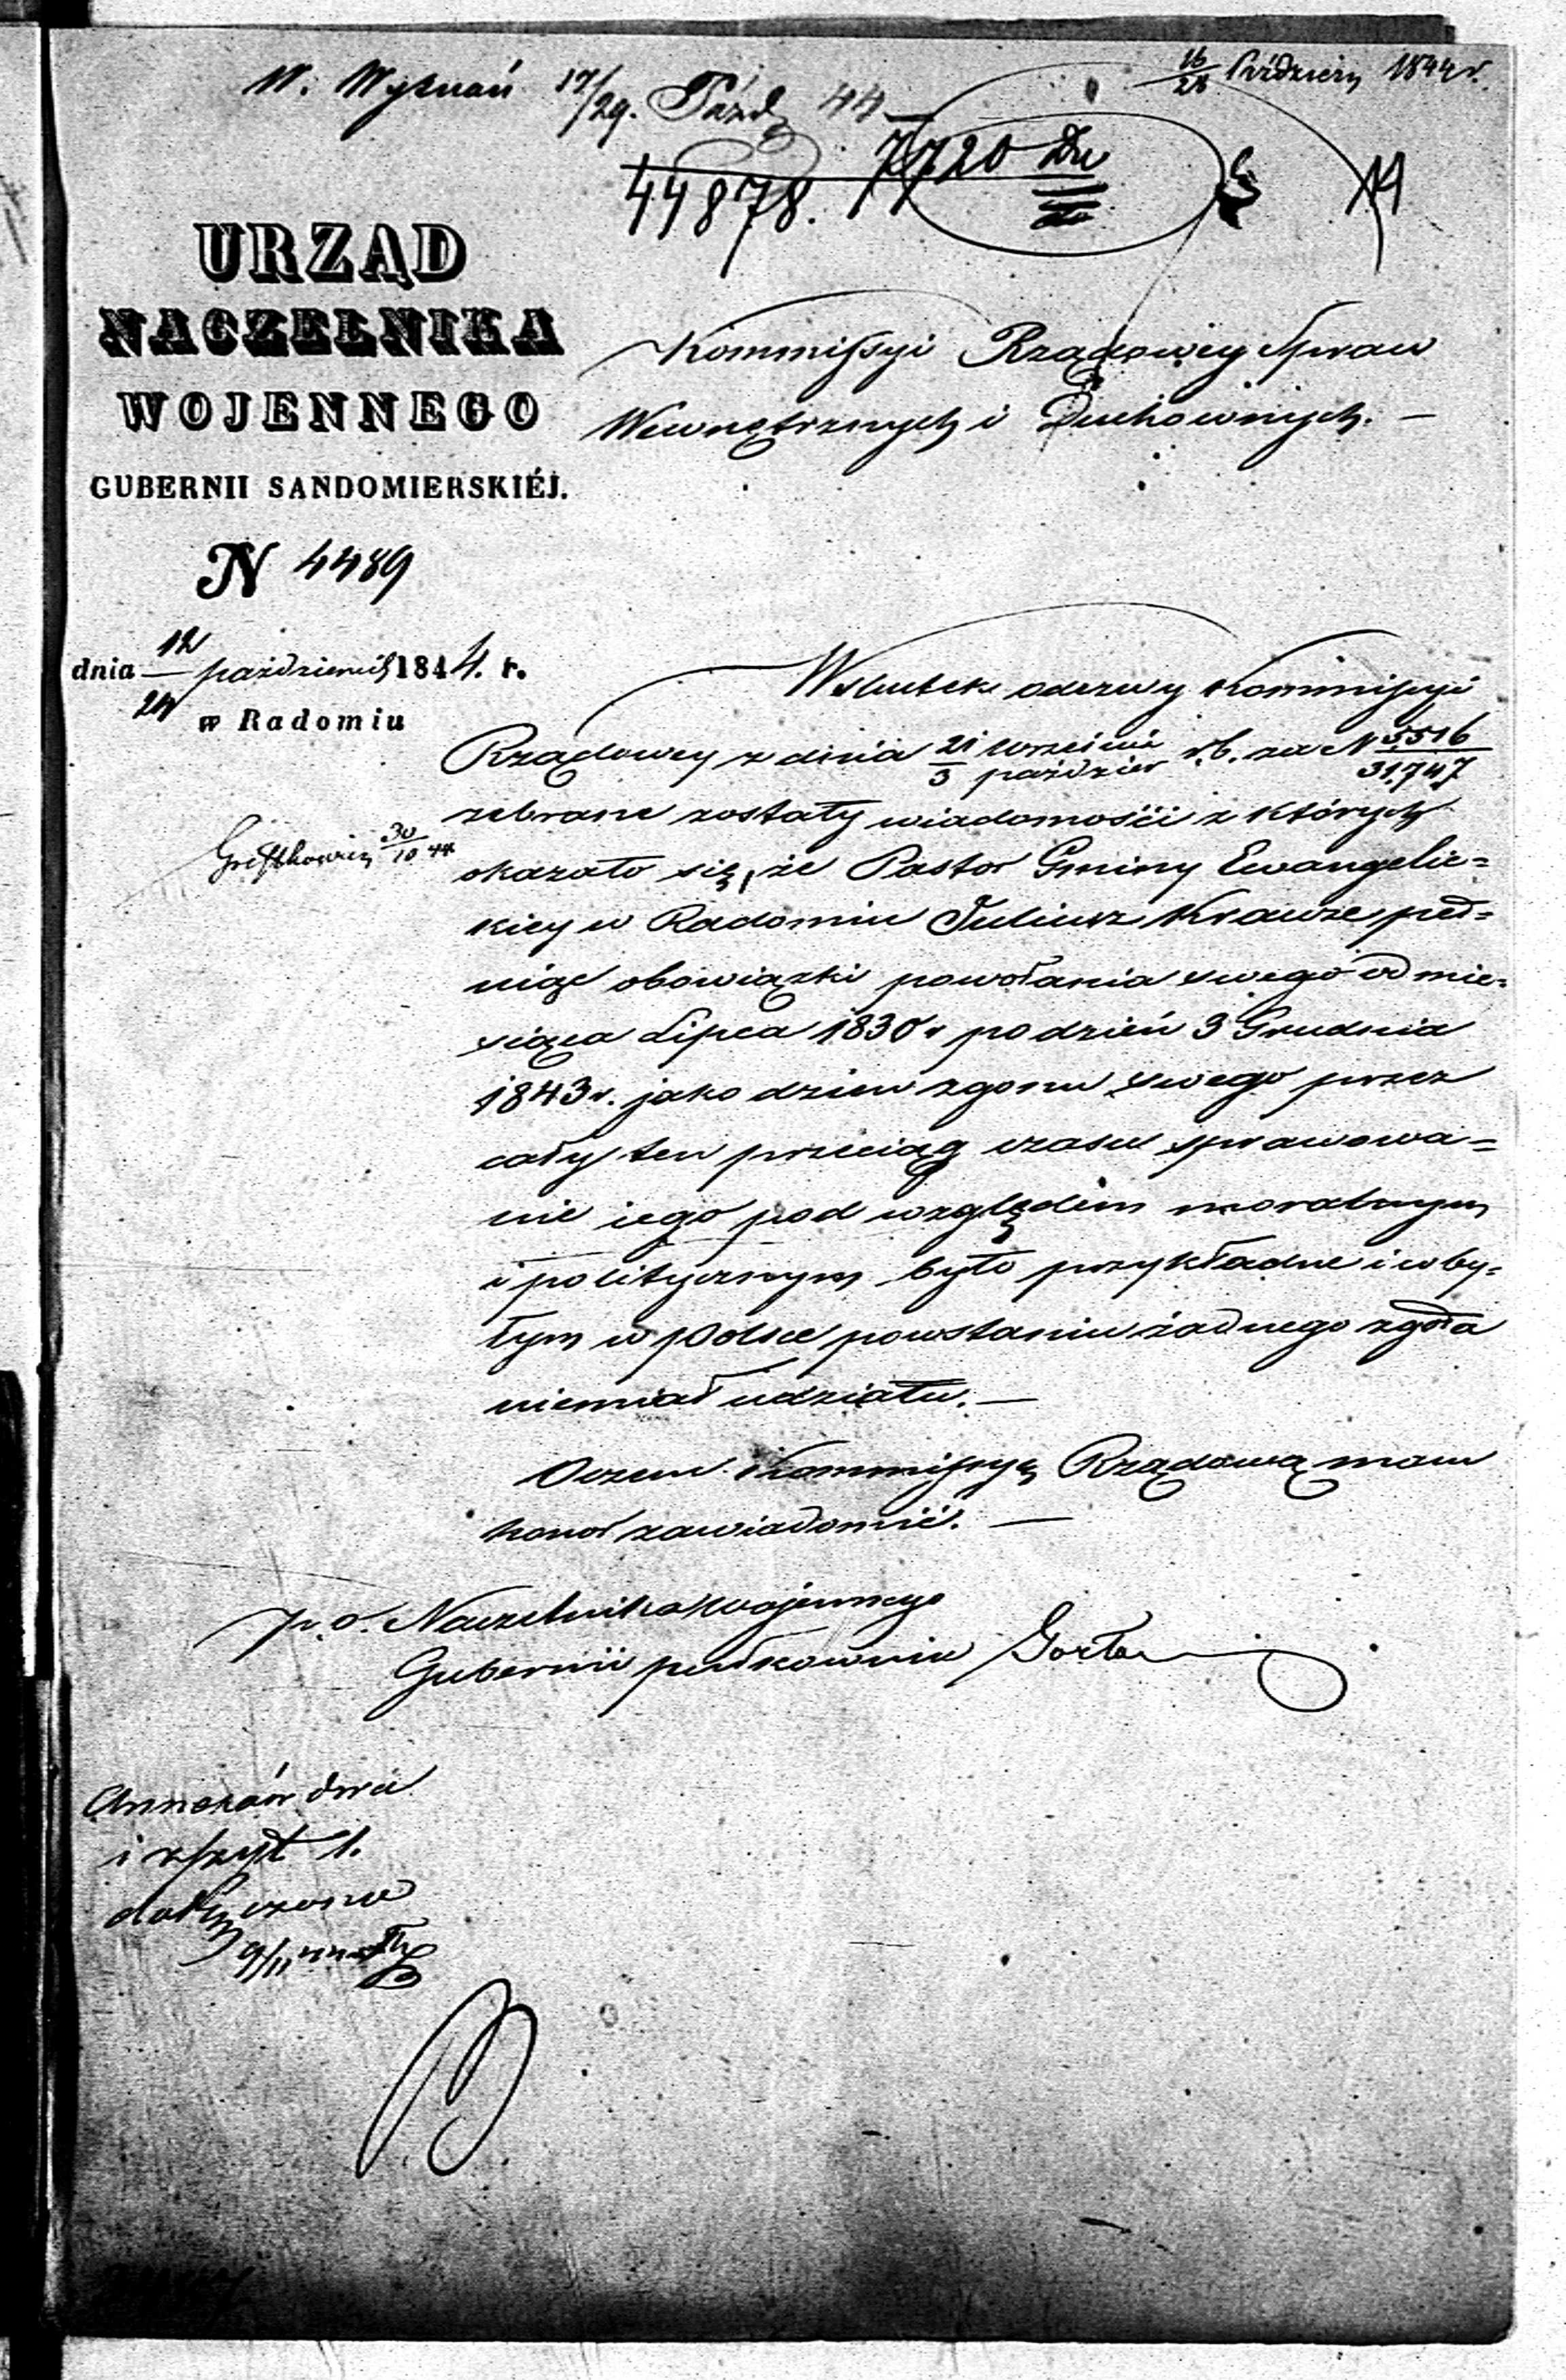 W. Wyznań 17/29. Paźdz 44
16/28 Paździer 1844 r.
44878. 7720
URZĄD
NACZELNIKA
WOJENNEGO
GUBERNII SANDOMIERSKIÉJ.
N 4489
dnia 12/24 październik 1844. r.
w Radomiu
Kommissyi Rządowey Spraw
Wewnętrznych i Duchownych. —
Wskutek odezwy Kommissyi
Rządowey z dnia 21 wrześnie/3 paździer r.b. za N 5516/31,747
zebrane zostały wiadomości z których
okazało się, że Pastor Gminy Ewangelic=
kiey w Radomiu Juliusz Krauze peł=
niąc obowiązki powołania swego od mie=
siąca Lipca 1830 r po dzień 3 Grudnia
1843 r. jako dzien zgonu swego przez
cały ten przeciąg czasu sprawowa=
nie iego pod względem moralnym
i politycznym było przykładne i w by=
łym w Polsce powstaniu żadnego zgoła
niemiał udziału. —
Oczem Kommissyą Rządową mam
honor zawiadomić. —
p. o. Naczelnika Wojennego
Gubernii pułkownik
Annexów dwa
i zszyt 1.
dołączono
9/11 44